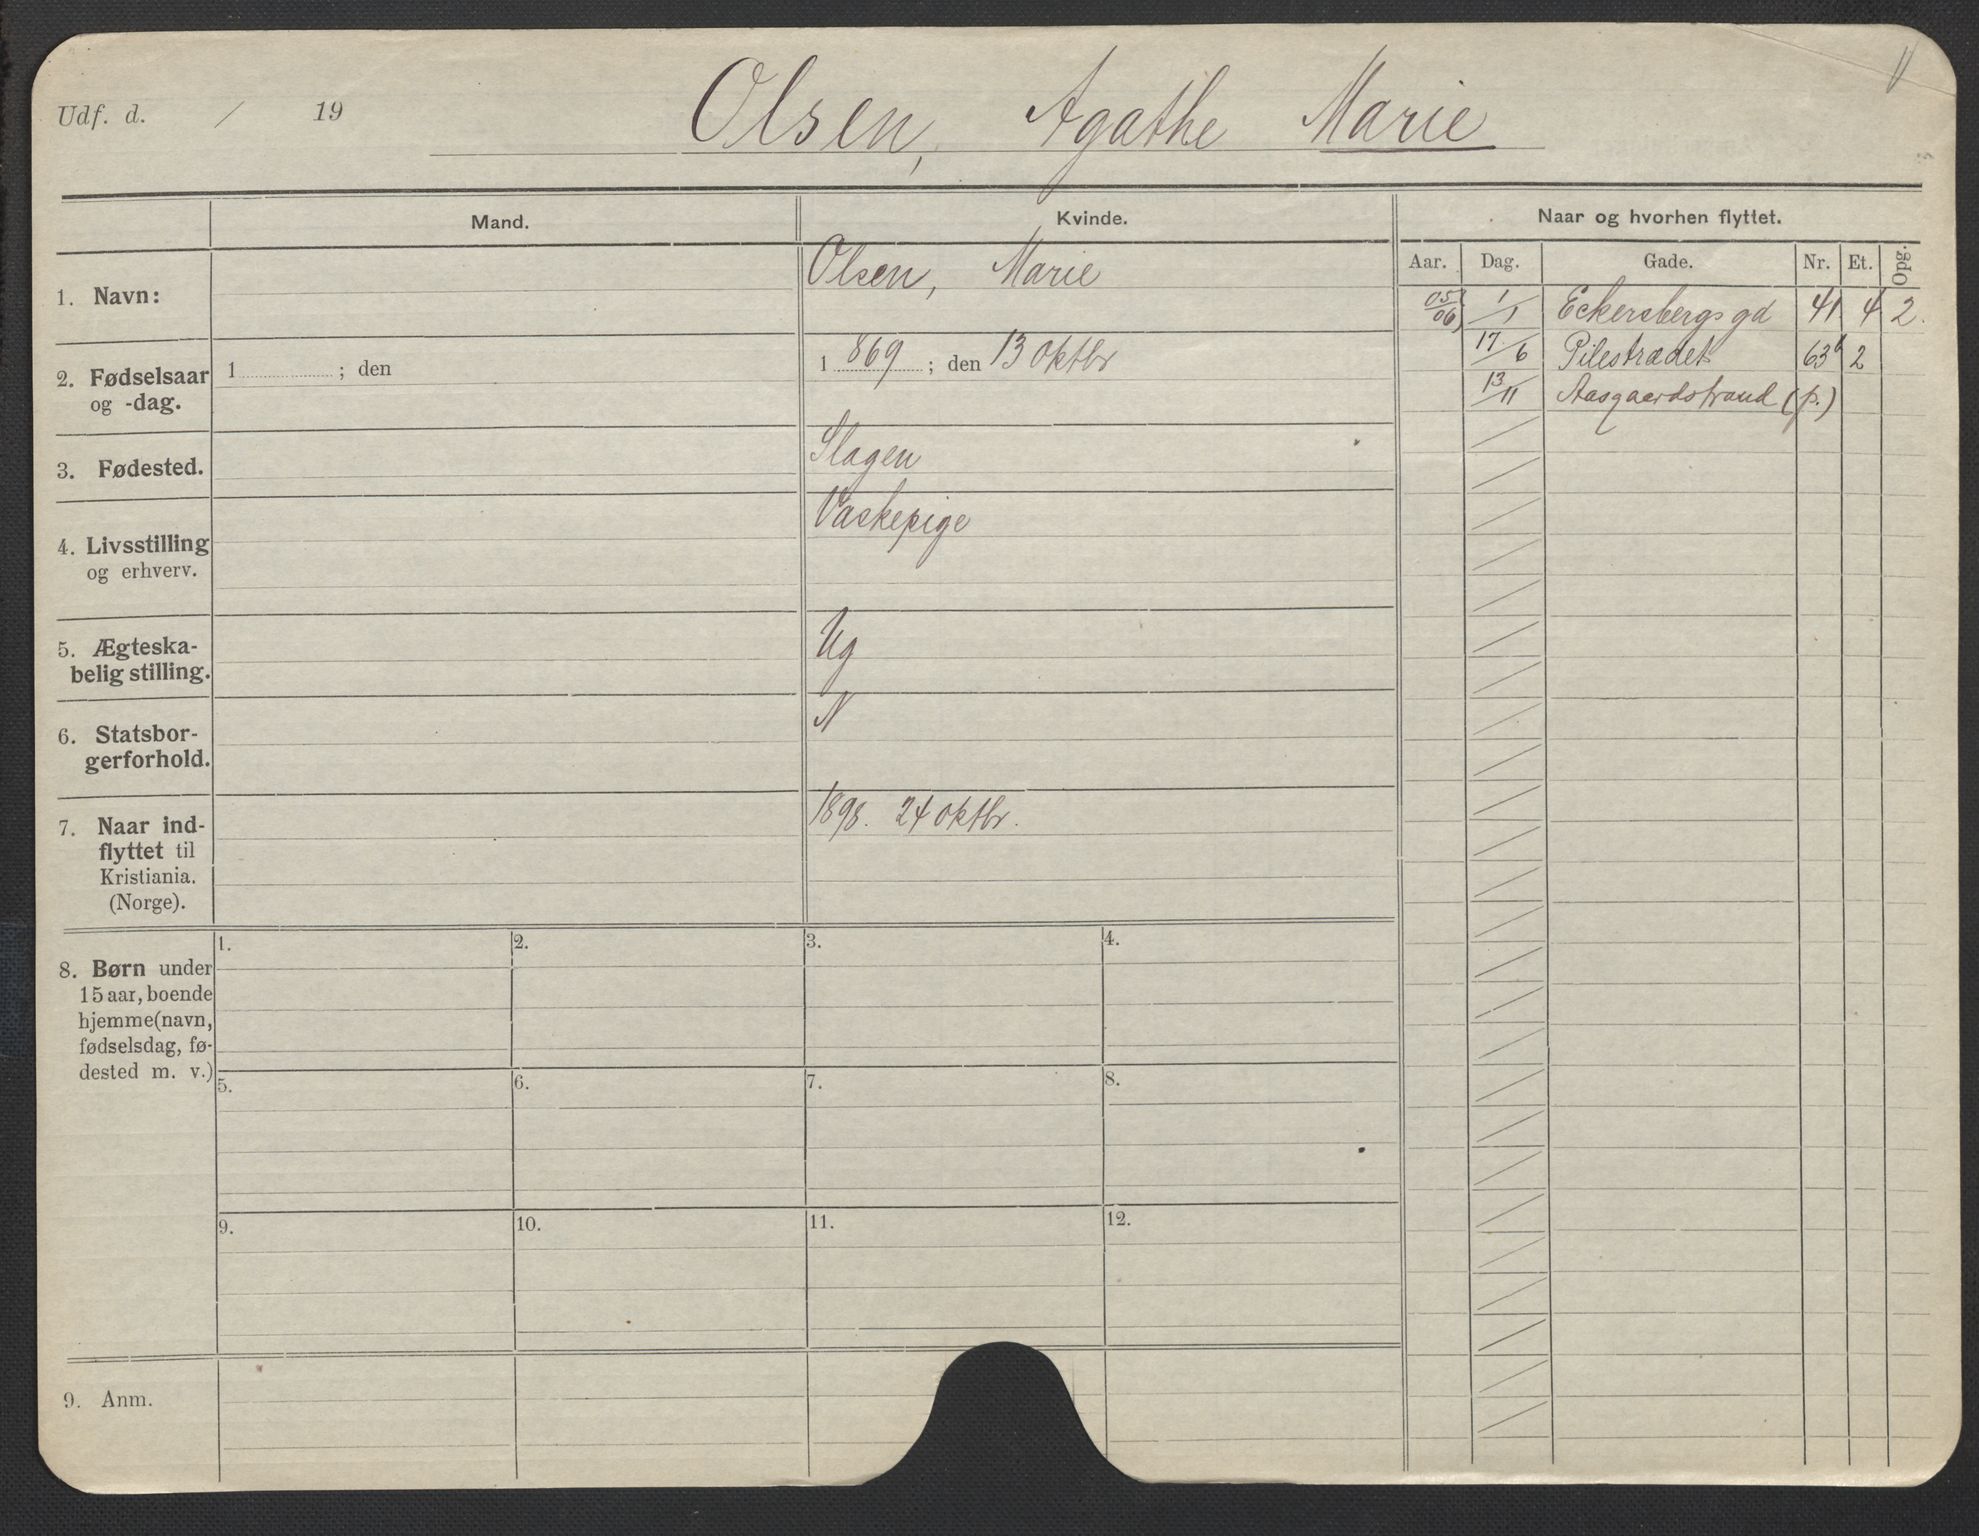 Udf. d. / 19
Olsen, Agathe Marie
Mand. Kvinde. Naar og hvorhen flyttet.
Aar. Dag. Gade. Nr. Et. Opg.
1. Navn: Olsen, Marie
05/06 1/1 Eckersbergs gd 41 4 2.
17/6 Pilestrædet 63b 2
13/11 Aasgaardstrand (p.)
2. Fødselsaar
og -dag.
1 ; den
1 869 ; den 13 oktbr
3. Fødested. Slagen
4. Livsstilling
og erhverv.
Vaskepige
5. Ægteska-
belig stilling.
Ug
6. Statsbor-
gerforhold.
N
7. Naar ind-
flyttet til
Kristiania.
(Norge).
1898. 24 oktbr.
8. Børn under
15 aar, boende
hjemme (navn,
fødselsdag, fø-
dested m. v.)
1. 2. 3. 4.
5. 6. 7. 8.
9. 10. 11. 12.
9. Anm.